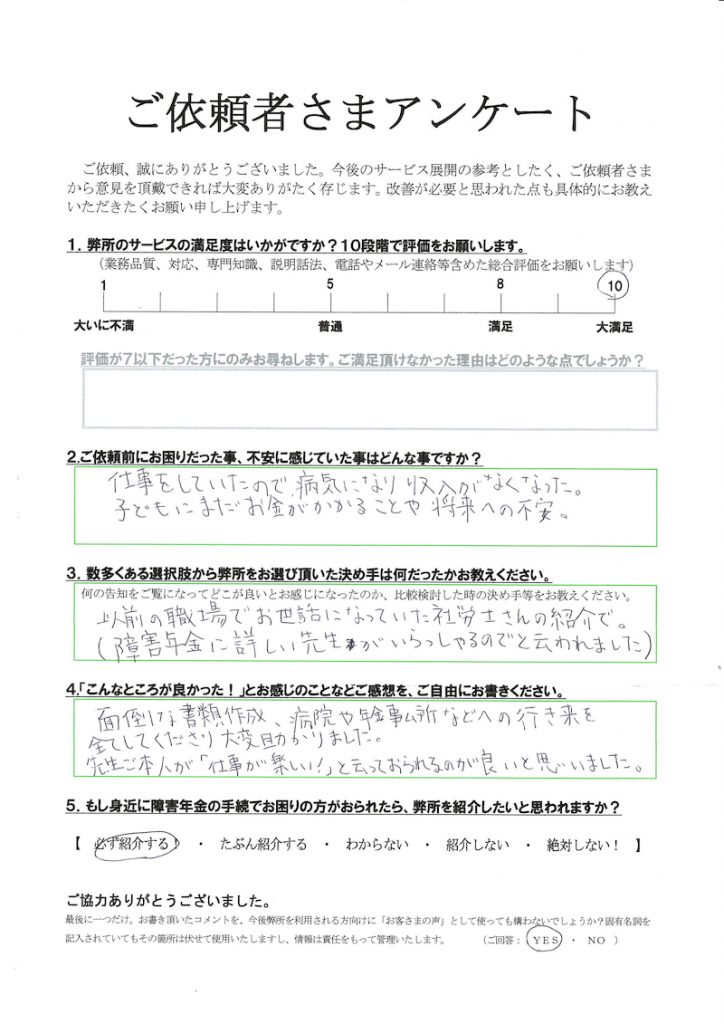 ご依頼者さまアンケート
ご依頼、誠にありがとうございました。今後のサービス展開の参考としたく、ご依頼者さま
から意見を頂戴できれば大変ありがたく存じます。改善が必要と思われた点も具体的にお教え
いただきたくお願い申し上げます。
1. 弊所のサービスの満足度はいかがですか？10段階で評価をお願いします。
（業務品質、対応、専門知識、説明話法、電話やメール連絡等含めた総合評価をお願いします）
1 5 8 10
大いに不満 普通 満足 大満足
評価が7以下だった方にのみお尋ねします。ご満足頂けなかった理由はどのような点でしょうか？
2.ご依頼前にお困りだった事、不安に感じていた事はどんな事ですか？
仕事をしていたので、病気になり収入がなくなった。
子どもにまだお金がかかることや将来への不安。
3. 数多くある選択肢から弊所をお選び頂いた決め手は何だったかお教えください。
何の告知をご覧になってどこが良いとお感じになったのか、比較検討した時の決め手等をお教えください。
以前の職場でお世話になっていた社労士さんの紹介で。
(障害年金に詳しい先生がいらっしゃるのでと云われました)
4.「こんなところが良かった！」とお感じのことなどご感想を、ご自由にお書きください。
面倒な書類作成、病院や年金事務所などへの行き来を
全てしてくださり大変助かりました。
先生ご本人が「仕事が楽しい！」と云っておられるのが良いと思いました。
5. もし身近に障害年金の手続でお困りの方がおられたら、弊所を紹介したいと思われますか？
【 必ず紹介する！ ・ たぶん紹介する ・ わからない ・ 紹介しない ・ 絶対しない！ 】
ご協力ありがとうございました。
最後に一つだけ。お書き頂いたコメントを、今後弊所を利用される方向けに「お客さまの声」として使っても構わないでしょうか？固有名詞を
記入されていてもその箇所は伏せて使用いたしますし、情報は責任をもって管理いたします。 （ご回答： YES ・ NO ）